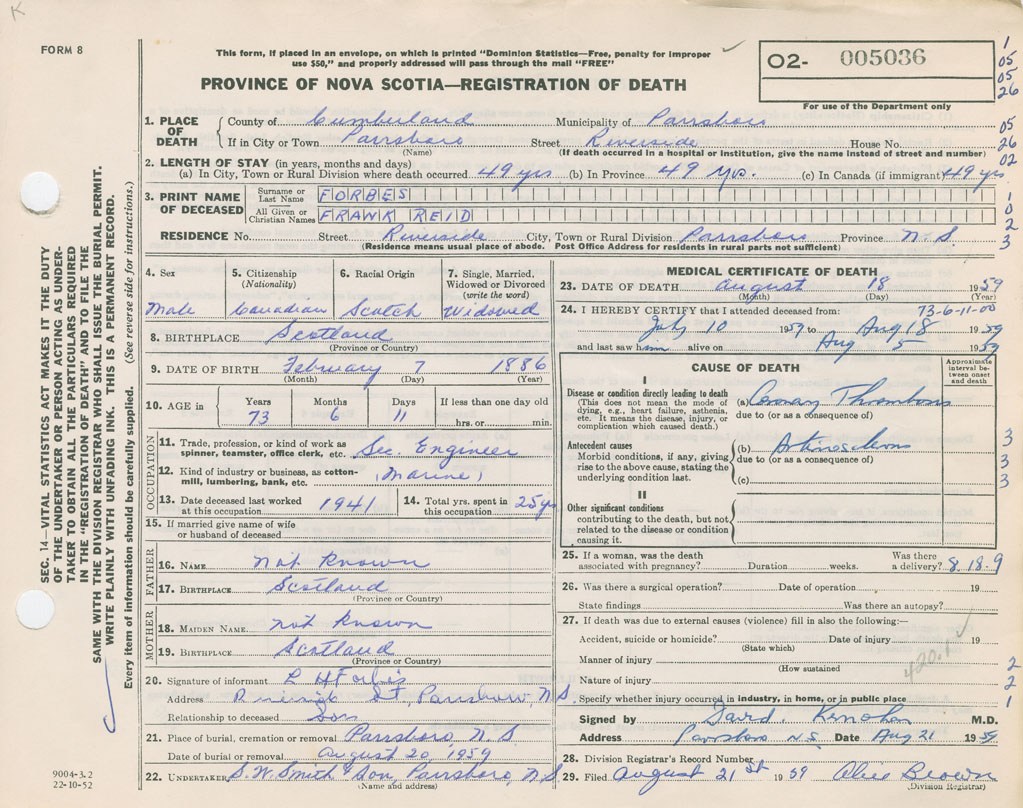 K
FORM 8
This form, if placed in an envelope, on which is printed "Dominion Statistics—Free, penalty for improper
use $50," and properly addressed will pass through the mail "FREE"
PROVINCE OF NOVA SCOTIA—REGISTRATION OF DEATH
O2- 005036
For use of the Department only
1
05
05
26
1. PLACE OF DEATH County of Cumberland Municipality of Parrsboro
If in City or Town Parrsboro Street Riverside House No.
(Name) (If death occurred in a hospital or institution, give the name instead of street and number)
05
26
02
2. LENGTH OF STAY (in years, months and days)
(a) In City, Town or Rural Division where death occurred 49 yrs (b) In Province 49 Yrs. (c) In Canada (if immigrant) 49 yrs
3. PRINT NAME OF DECEASED Surname or Last Name FORBES
All Given or Christian Names FRANK REID
RESIDENCE No. Street Riverside City, Town or Rural Division Parrsboro Province N.S.
(Residence means usual place of abode. Post Office Address for residents in rural parts not sufficient)
1
0
2
3
4. Sex Male
5. Citizenship (Nationality) Canadian
6. Racial Origin Scotch
7. Single, Married, Widowed or Divorced (write the word) Widowed
8. BIRTHPLACE Scotland
(Province or Country)
9. DATE OF BIRTH February 7 1886
(Month) (Day) (Year)
10. AGE in Years 73 Months 6 Days 11 If less than one day old hrs. or min.
OCCUPATION
11. Trade, profession, or kind of work as spinner, teamster, office clerk, etc. Sec. Engineer
12. Kind of industry or business, as cotton-mill, lumbering, bank, etc. (Marine)
13. Date deceased last worked at this occupation 1941
14. Total yrs. spent in this occupation 25 yrs
15. If married give name of wife or husband of deceased
FATHER
16. NAME Not Known
17. BIRTHPLACE Scotland
(Province or Country)
MOTHER
18. MAIDEN NAME not Known
19. BIRTHPLACE Scotland
(Province or Country)
20. Signature of informant L H Forbes
Address St, Parrsboro, N.S.
Relationship to deceased Son
21. Place of burial, cremation or removal Parrsboro N.S
Date of burial or removal August 20, 1959
22. UNDERTAKER S. W. Smith & Son, Parrsboro, N.S.
(Name and address)
MEDICAL CERTIFICATE OF DEATH
23. DATE OF DEATH August 18 1959
(Month) (Day) (Year)
24. I HEREBY CERTIFY that I attended deceased from: 73-6-11-00
July 10 1959 to Aug 18 1959
and last saw him alive on Aug 5 1959
CAUSE OF DEATH
Approximate interval between onset and death
I
Disease or condition directly leading to death (a) Coronary Thrombosis
(This does not mean the mode of dying, e.g., heart failure, asthenia, etc. It means the disease, injury, or complication which caused death.)
due to (or as a consequence of)
Antecedent causes (b)
Morbid conditions, if any, giving rise to the above cause, stating the underlying condition last.
due to (or as a consequence of)
(c)
3
3
3
II
Other significant conditions
contributing to the death, but not related to the disease or condition causing it.
25. If a woman, was the death associated with pregnancy? Duration weeks. Was there a delivery? 8.18.9
26. Was there a surgical operation? Date of operation 19
State findings Was there an autopsy?
27. If death was due to external causes (violence) fill in also the following:—
Accident, suicide or homicide? Date of injury 19
(State which)
Manner of injury 420.1
(How sustained
Nature of injury
Specify whether injury occurred in industry, in home, or in public place
2
2
1
Signed by David. Kernohan M.D.
Address Parrsboro N.S. Date Aug 21 1959
28. Division Registrar's Record Number
29. Filed August 21st 1959 Alice Brown
(Division Registrar)
SEC. 14—VITAL STATISTICS ACT MAKES IT THE DUTY
OF THE UNDERTAKER OR PERSON ACTING AS UNDER-
TAKER TO OBTAIN ALL THE PARTICULARS REQUIRED
IN THE "REGISTRATION OF DEATH" AND TO FILE THE
SAME WITH THE DIVISION REGISTRAR WHO SHALL ISSUE THE BURIAL PERMIT.
WRITE PLAINLY WITH UNFADING INK. THIS IS A PERMANENT RECORD.
Every item of information should be carefully supplied. (See reverse side for instructions.)
9004-3.2
22-10-52